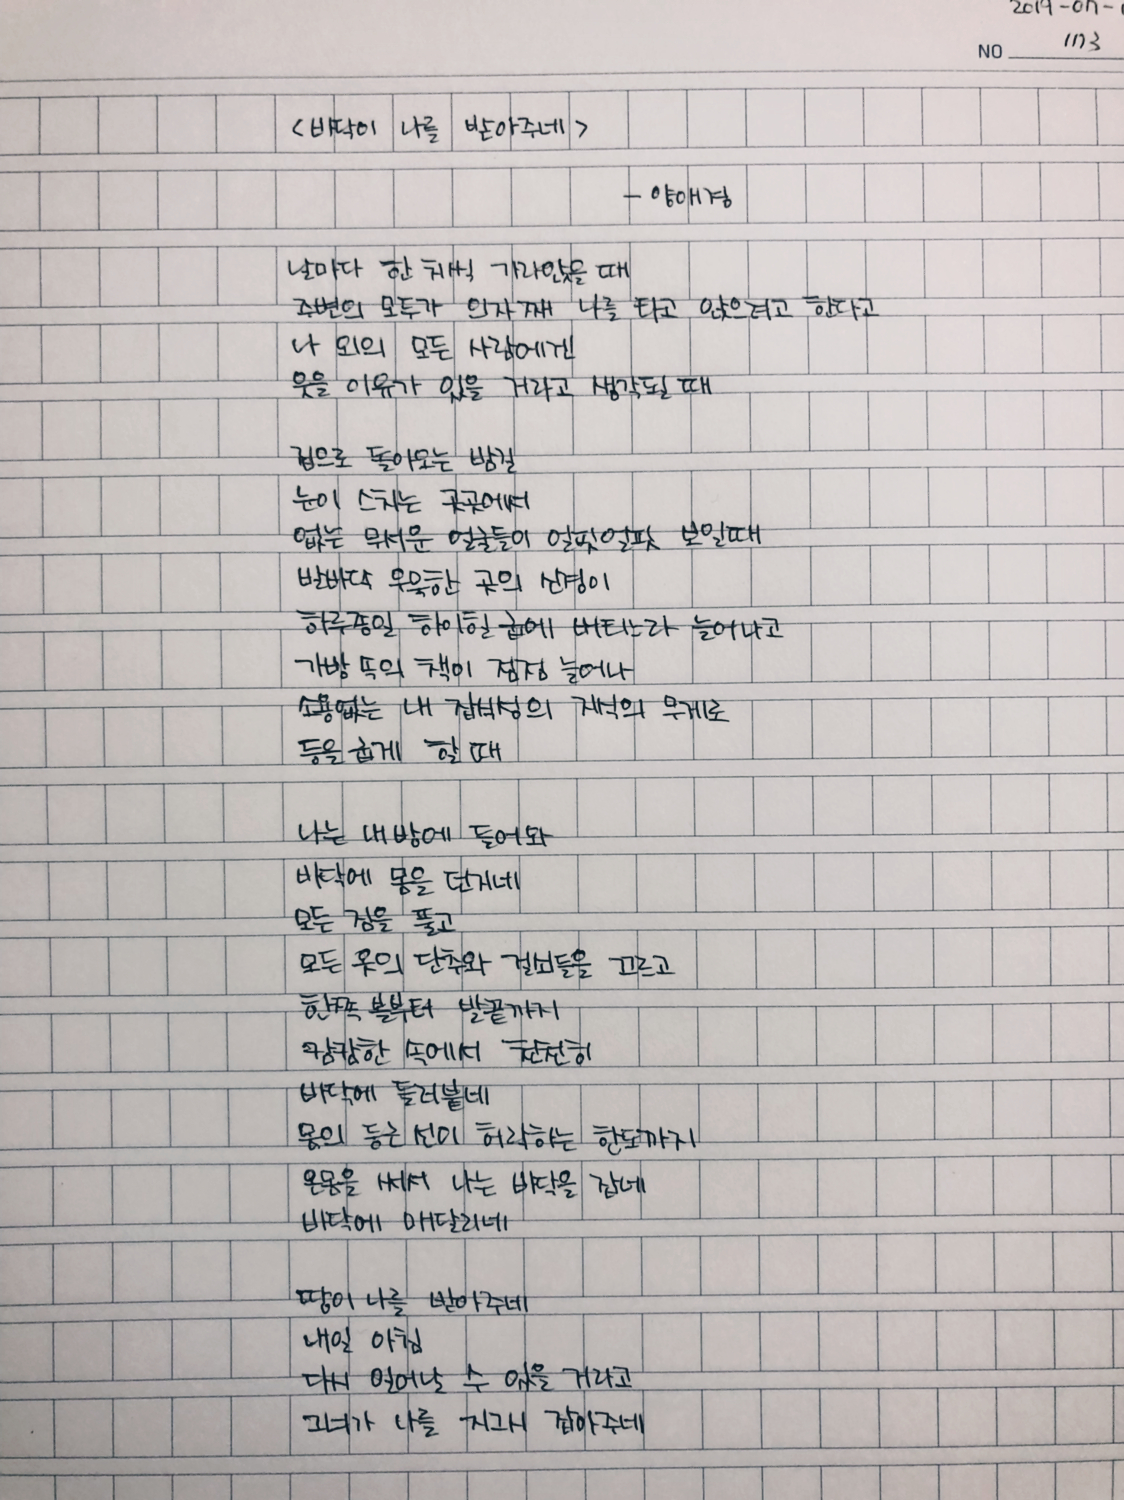 2019-07-
NO 173
<바닥이 나를 받아주네>
- 양애경
날마다 한 치씩 가라앉을 때
주변의 모두가 의자째 나를 타고 앉으려고 한다고
나 외의 모든 사람에겐
웃을 이유가 있을 거라고 생각될 때
집으로 돌아오는 밤길
눈이 스치는 곳곳에서
없는 무서운 얼굴들이 얼핏얼핏 보일때
발바닥 우묵한 곳의 신경이
하루종일 하이힐 굽에 버티느라 늘어나고
가방 속의 책이 점점 늘어나
소용없는 내 잡식성의 지식의 무게로
등을 굽게 할 때
나는 내 방에 들어와
바닥에 몸을 던지네
모든 짐을 풀고
모든 옷의 단추와 걸쇠들을 끄르고
한쪽 볼부터 발끝까지
캄캄한 속에서 천천히
바닥에 들러붙네
몸의 둥근 선이 허락하는 한도까지
온몸을 써서 나는 바닥을 잡네
바닥에 매달리네
땅이 나를 받아주네
내일 아침
다시 일어날 수 있을 거라고
그녀가 나를 지그시 잡아주네